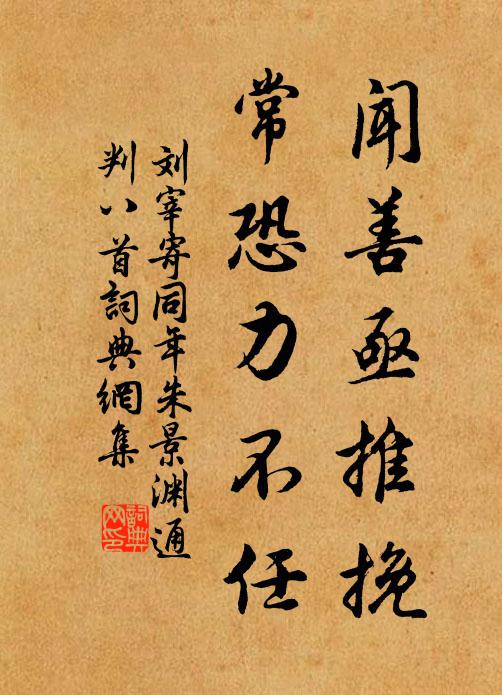 闻善亟推挽
常恐力不任
刘宰寄同年朱景渊通
判八首詞典網集
詞典网印